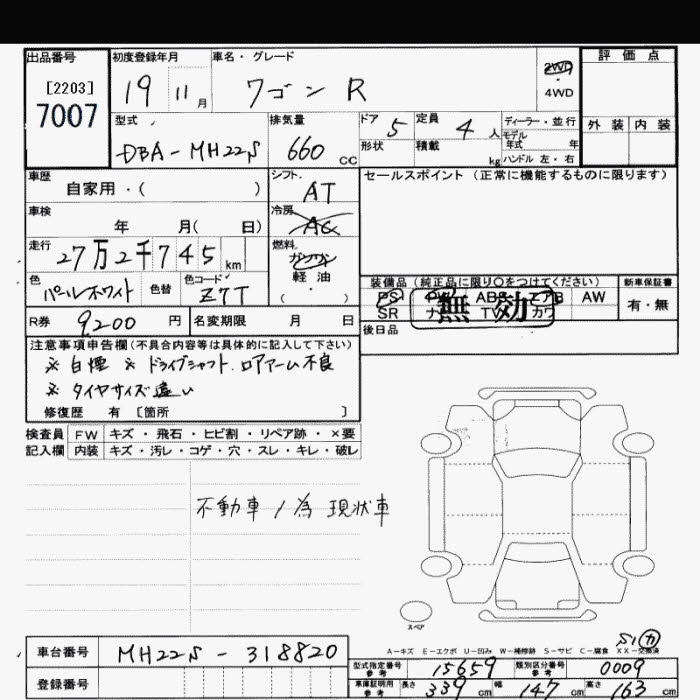 出品番号 初度登録年月 車名・グレード 評価点
[2203]
7007
19 11月 ワゴン R 2WD
4WD
型式 排気量 ドア 5 定員 4人 ディーラー・並行 外装 内装
DBA-MH22S 660cc 形状 積載 kg モデル年式 年
ハンドル 左・右
車歴 シフト セールスポイント(正常に機能するものに限ります)
自家用・( ) AT
車検 冷房
年 月( 日) AC
走行 燃料
27万2千745km ガソリン
軽油
( )
色 色替 色コード 装備品(純正品に限り○をつけてください) 新車保証書
パールホワイト Z7T PS PW ABS エアB AW 有・無
SR ナビ TV カワ
無効
R券 9200円 名変期限 月 日 後日品
注意事項申告欄(不具合内容等は具体的に記入して下さい)
※白煙 ※ドライブシャフト、ロアアーム不良
※タイヤサイズ違い
修復歴 有 [箇所 ]
検査員 FW キズ・飛石・ヒビ割・リペア跡・×要
記入欄 内装 キズ・汚レ・コゲ・穴・スレ・キレ・破レ
不動車ノ為 現状車
スペア
S1 カ
A-キズ E-エクボ U-凹み W-補修跡 S-サビ C-腐食 XX-交換済
車台番号 MH22S-318820 型式指定番号 参考 15659 類別区分番号 参考 0009
登録番号 車庫証明用 参考 長さ 339cm 幅 147cm 高さ 163cm